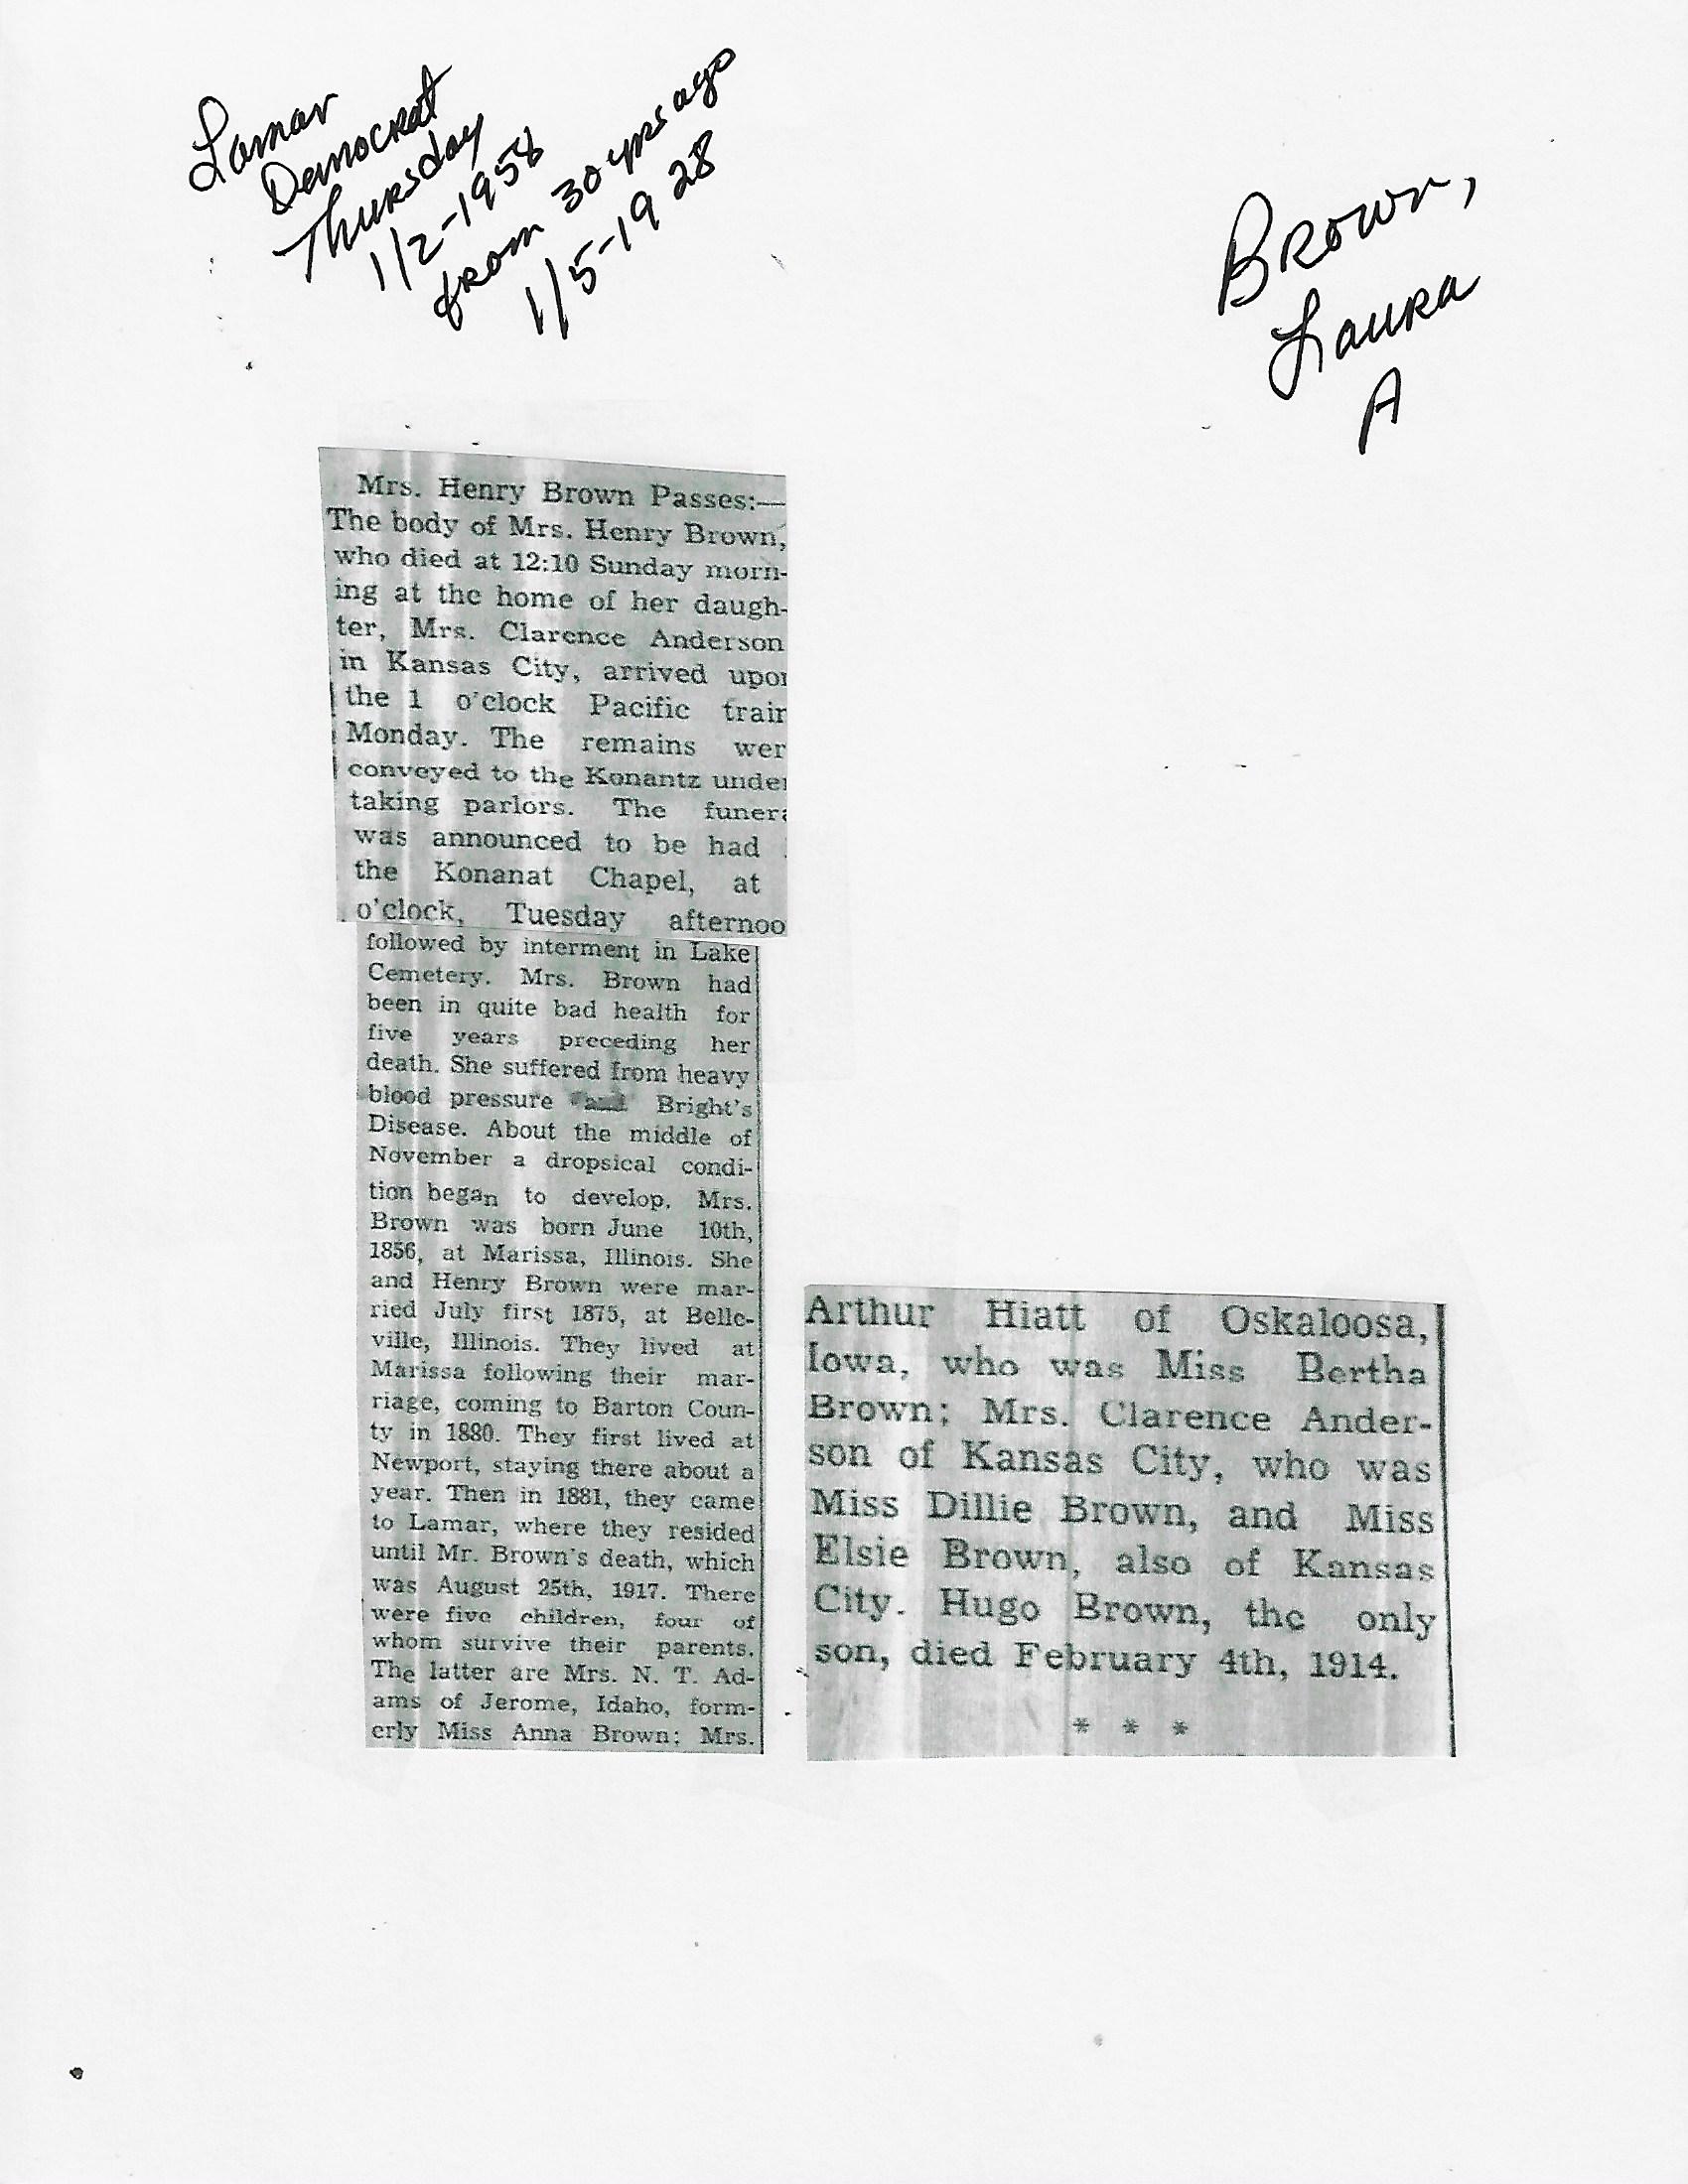 Lamar
Democrat
Thursday
1/2-1958
from 30 yrs ago
1/5-1928
Brown,
Laura
A
Mrs. Henry Brown Passes:—
The body of Mrs. Henry Brown,
who died at 12:10 Sunday morn-
ing at the home of her daugh-
ter, Mrs. Clarence Anderson
in Kansas City, arrived upon
the 1 o'clock Pacific train
Monday. The remains wer
conveyed to the Konantz under
taking parlors. The funera
was announced to be had
the Konanat Chapel, at
o'clock, Tuesday afternoo
followed by interment in Lake
Cemetery. Mrs. Brown had
been in quite bad health for
five years preceding her
death. She suffered from heavy
blood pressure and Bright's
Disease. About the middle of
November a dropsical condi-
tion began to develop. Mrs.
Brown was born June 10th,
1856, at Marissa, Illinois. She
and Henry Brown were mar-
ried July first 1875, at Belle-
ville, Illinois. They lived at
Marissa following their mar-
riage, coming to Barton Coun-
ty in 1880. They first lived at
Newport, staying there about a
year. Then in 1881, they came
to Lamar, where they resided
until Mr. Brown's death, which
was August 25th, 1917. There
were five children, four of
whom survive their parents.
The latter are Mrs. N. T. Ad-
ams of Jerome, Idaho, form-
erly Miss Anna Brown; Mrs.
Arthur Hiatt of Oskaloosa,
Iowa, who was Miss Bertha
Brown; Mrs. Clarence Ander-
son of Kansas City, who was
Miss Dillie Brown, and Miss
Elsie Brown, also of Kansas
City. Hugo Brown, the only
son, died February 4th, 1914.
* * *